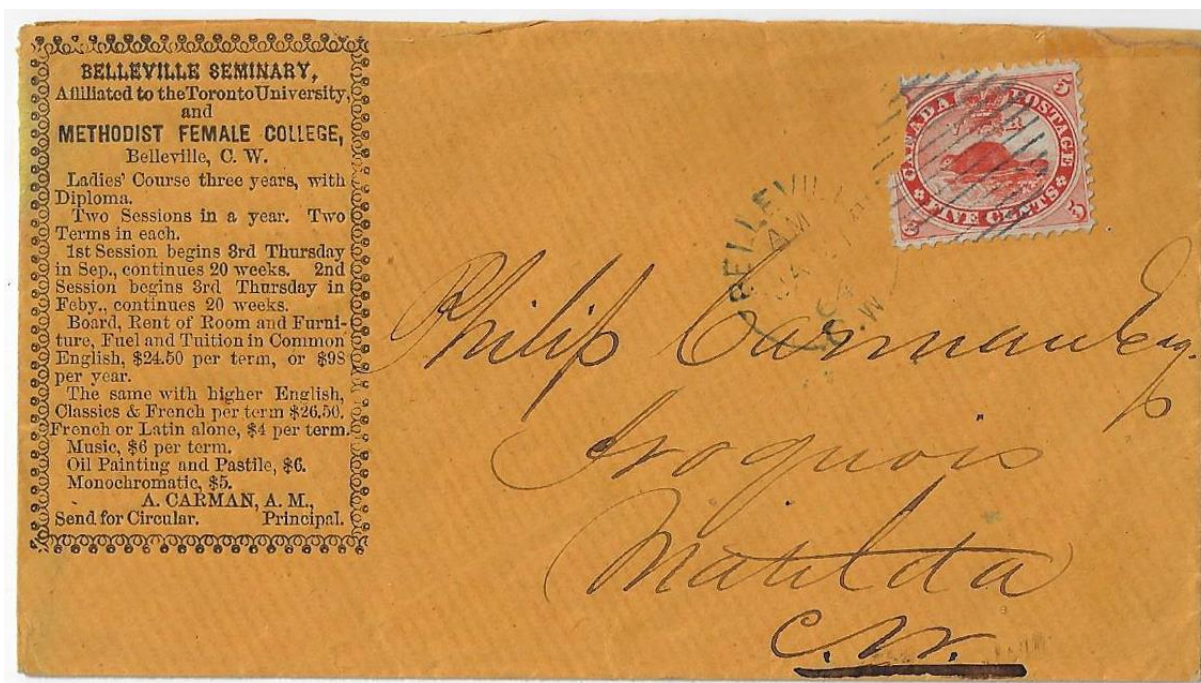 BELLEVILLE SEMINARY,
Affiliated to the Toronto University,
and
METHODIST FEMALE COLLEGE,
Belleville, C. W.
Ladies' Course three years, with
Diploma.
Two Sessions in a year. Two
Terms in each.
1st Session begins 3rd Thursday
in Sep., continues 20 weeks. 2nd
Session begins 3rd Thursday in
Feby., continues 20 weeks.
Board, Rent of Room and Furni-
ture, Fuel and Tuition in Common
English, $24.50 per term, or $98
per year.
The same with higher English,
Classics & French per term $26.50.
French or Latin alone, $4 per term.
Music, $6 per term.
Oil Painting and Pastile, $6.
Monochromatic, $5.
A. CARMAN, A. M.,
Send for Circular. Principal.
CANADA POSTAGE
5 5
FIVE CENTS
5 5
BELLEVILLE
AM
JA
64
C.W
Philip Carman Esq
Iroquois
Matilda
C.W.